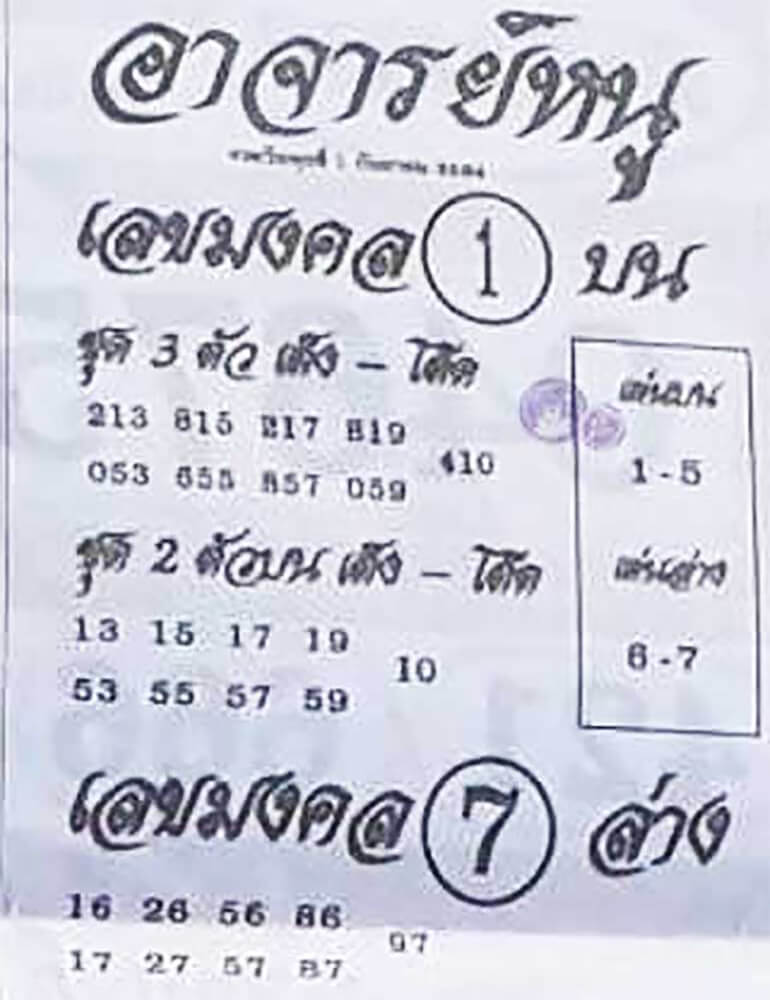 อาจารย์หนู
เลขมงคล 1 บน
ชุด 3 ตัว เต็ง - โต๊ด
213 815 217 819
410
053 655 857 059
ชุด 2 ตัวบน เต็ง - โต๊ด
13 15 17 19
10
53 55 57 59
เด่นบน
1 - 5
เด่นล่าง
6 - 7
เลขมงคล 7 ล่าง
16 26 56 86
97
17 27 57 87